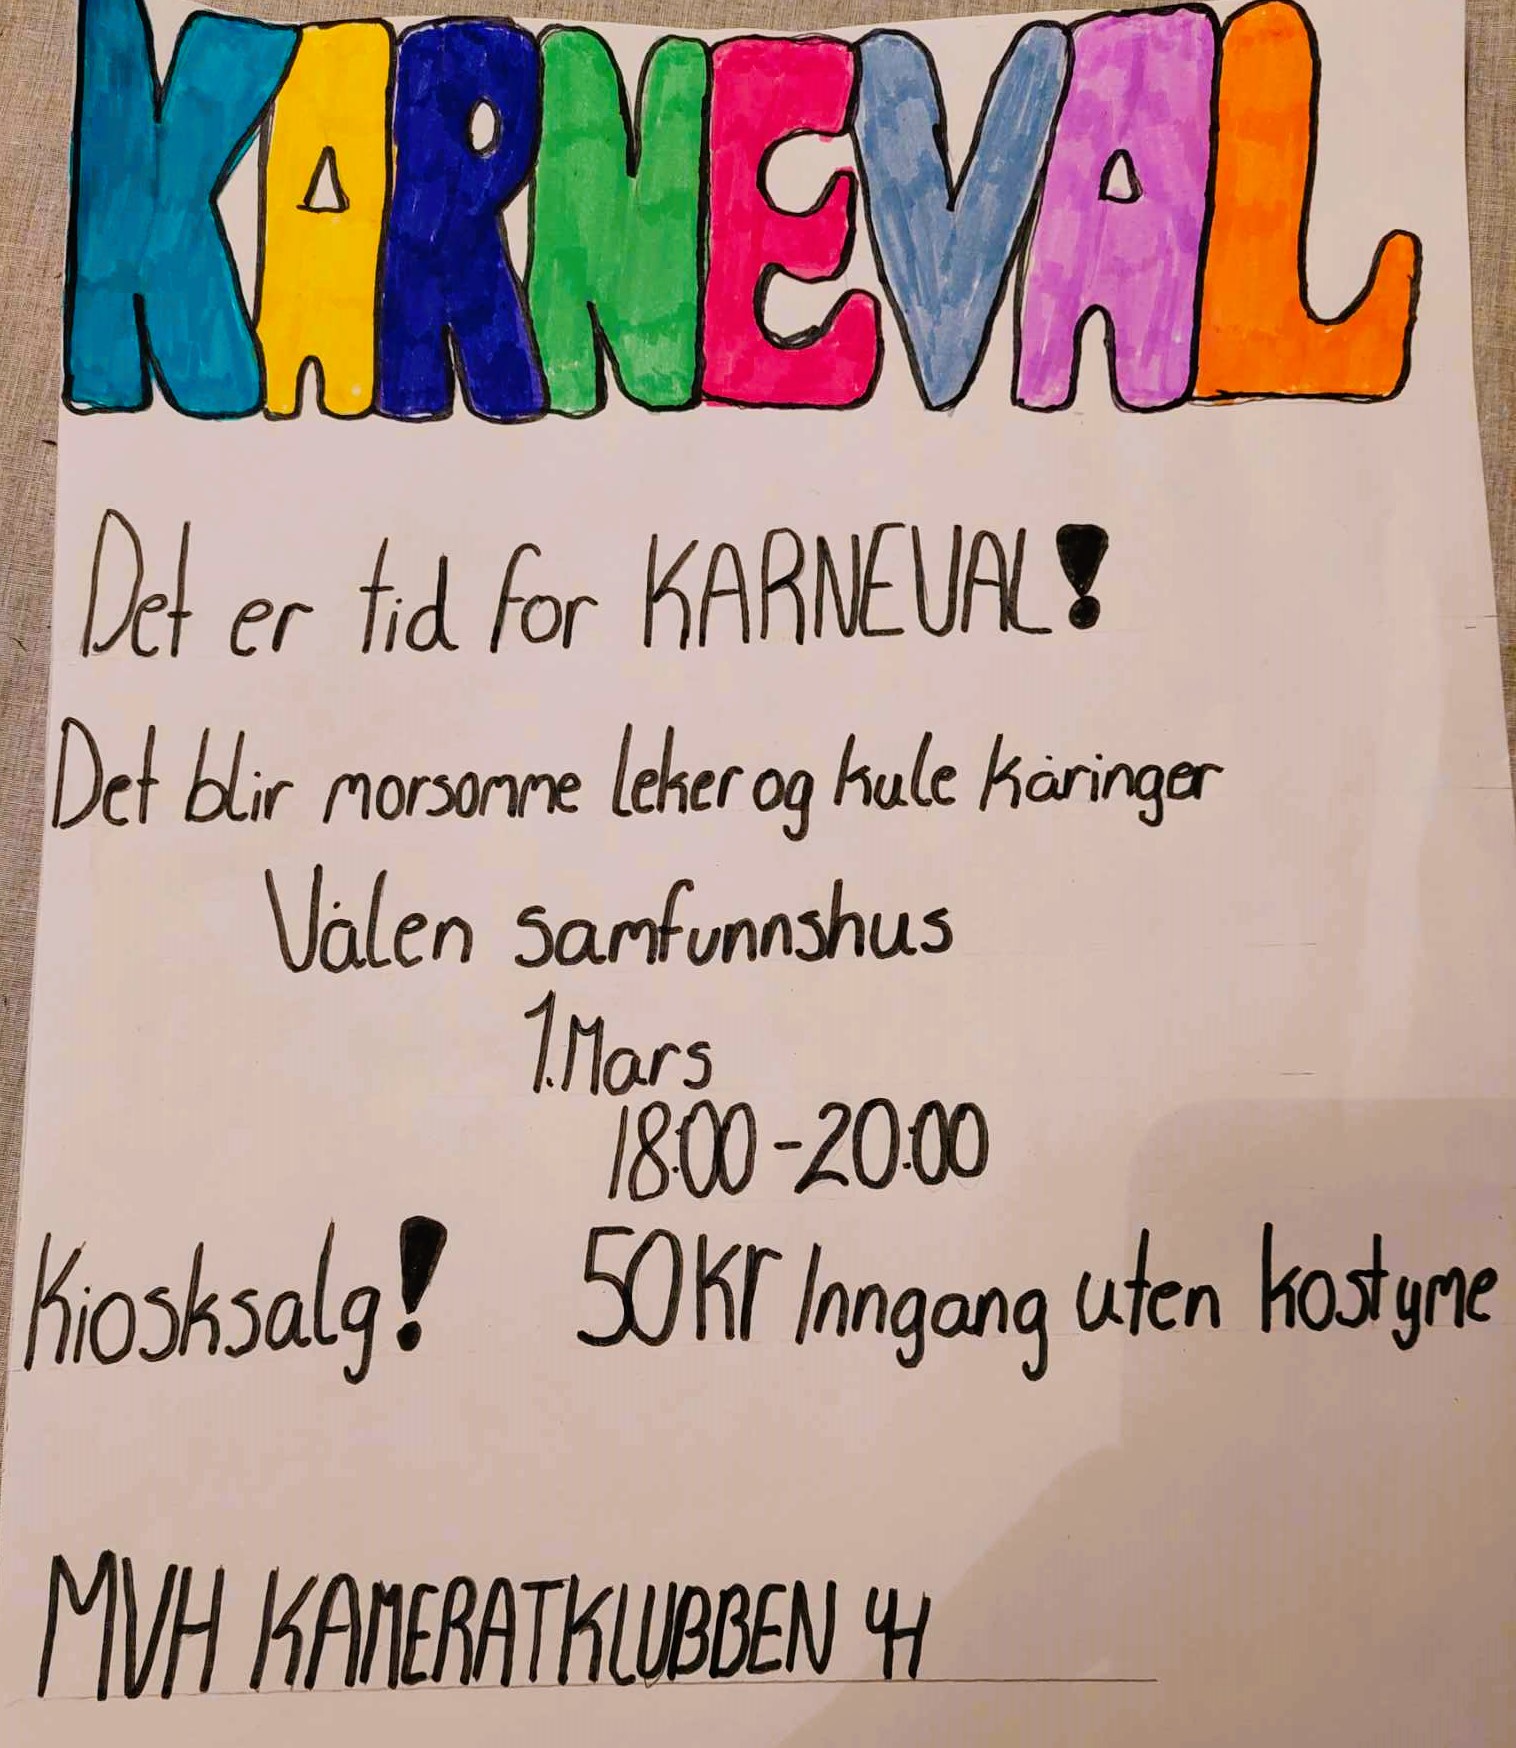 KARNEVAL
Det er tid for KARNEVAL!
Det blir morsomme leker og kule kåringer
Vålen samfunnshus
1. Mars
18:00 - 20:00
Kiosksalg! 50 kr Inngang uten kostyme
MVH KAMERATKLUBBEN 4H